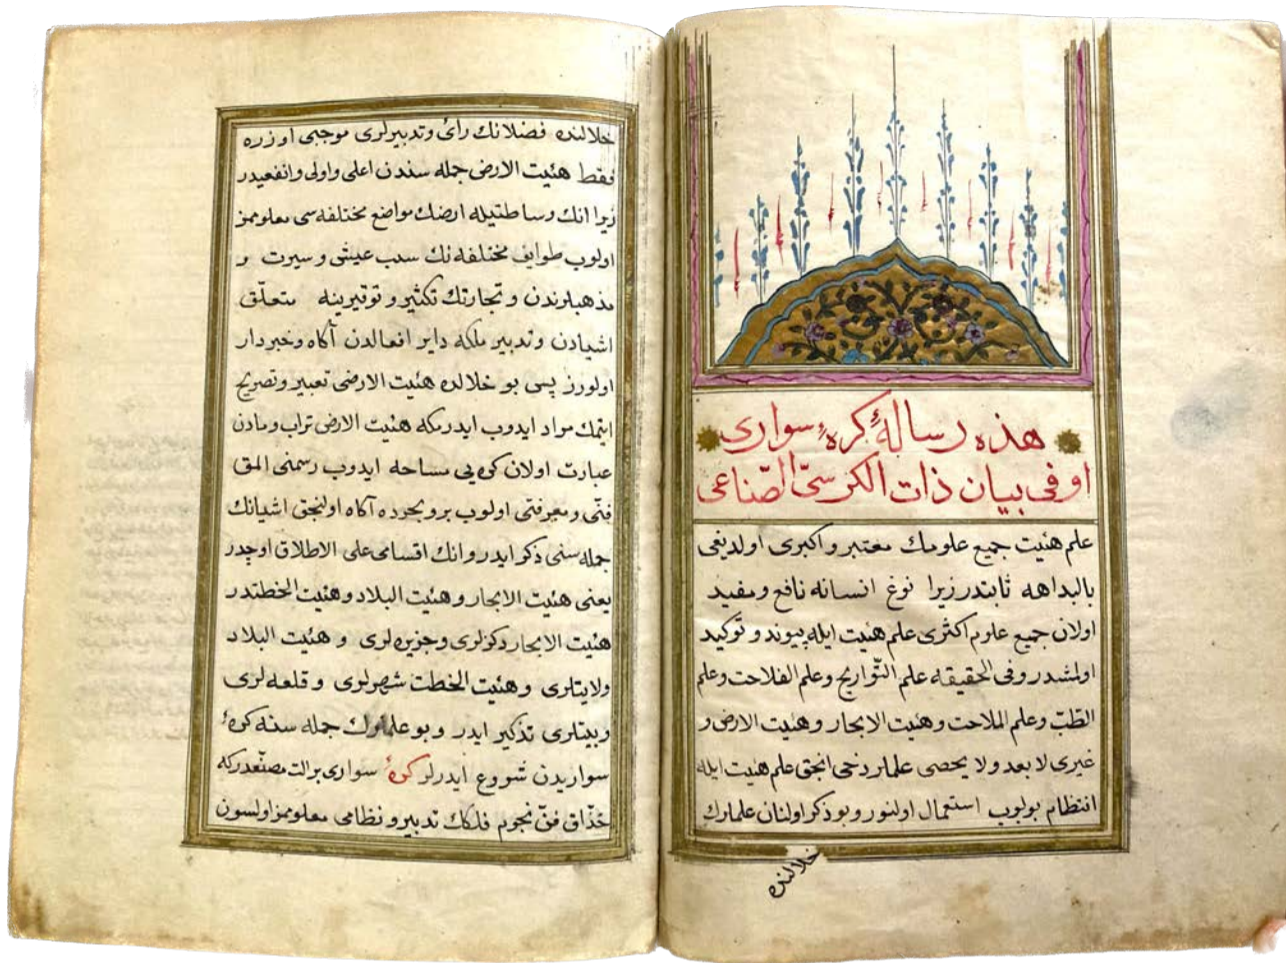 هذه رسالهٔ كرهٔ سوارى
او فى بيان ذات الكرسىّ الصّناعى
علم هئيت جميع علومك معتبر و اكبرى اولديغى
بالبداهه ثابتدر زيرا نوع انسانه نافع و مفيد
اولان جميع علوم اكثرى علم هئيت ايله پيوند و توكيد
اولمشدر و فى الحقيقه علم التّواريخ و علم الفلاحت و علم
الطّبّ و علم الملاحت و هئيت الابحار و هئيت الارض و
غيرى لا يعد ولا يحصى علملر دخى انجق علم هئيت ايله
انتظام بولوب استعمال اولنور و بو ذكر اولنان علملرك
خلالنده
خلالنده فضلانك رائ و تدبيرلرى موجبى اوزره
فقط هئيت الارض جمله سندن اعلى و اولى و انفعيدر
زيرا انك وساطتيله ارضك مواضع مختلفه سى معلوممز
اولوب طوايف مختلفه نك سبب عيشى و سيرت و
مذهبلرندن و تجارتك تكثير و توقيرينه متعلّق
اشيادن و تدبير ملكه داير افعالدن آكاه و خبردار
اولورز پس بو خلالده هئيت الارضى تعبير و تصريح
ايتمك مراد ايدوب ايدرمكه هئيت الارض تراب و مادن
عبارت اولان كره يى مساحه ايدوب رسمنى المق
فنّى و معرفتى اولوب بر و بحرده آكاه اولنجق اشيانك
جمله سنى ذكر ايدر و انك اقسامى على الاطلاق اوچدر
يعنى هئيت الابحار و هئيت البلاد و هئيت الخطتدر
هئيت الابحار دكزلرى و جزيره لرى و هئيت البلاد
ولايتلرى و هئيت الخطت شهرلرى و قلعه لرى
و بيتلرى تذكير ايدر و بو علملرك جمله سنه كرهٔ
سواريدن شروع ايدرلر كرهٔ سوارى بر الت مصنّعدركه
حذّاق فنّ نجوم فلكك تدبير و نظامى معلوممز اولسون